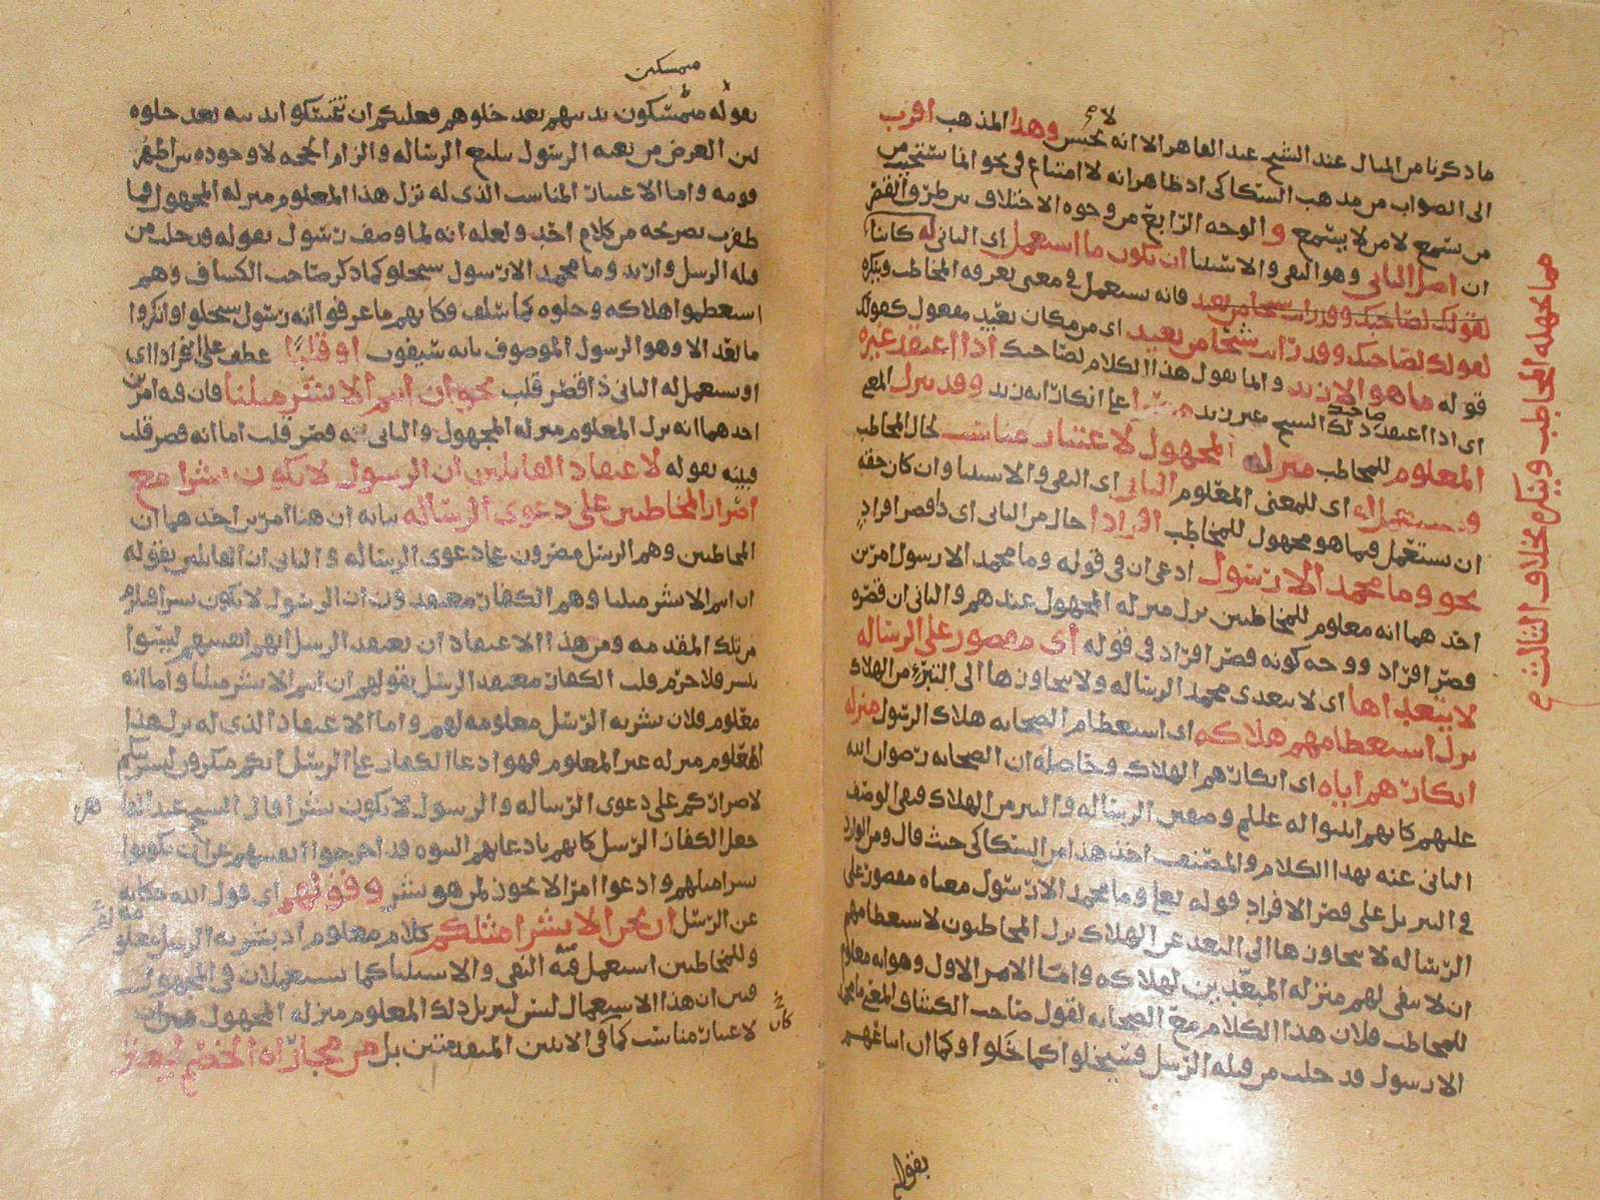 ما ذكرنا من المنال عند الشيخ عبد القاهر الا انه يحسن وهذا المذهب اقرب
لا
الى الصواب من مذهب السكاكي اذ ظاهر انه لا امتناع في نحو انما يستجيب من
من يسمع لا من لا يسمع والوجه الرابع من وجوه الاختلاف بين طرق القصر
ان اصل الثاني وهو النفي والاستثنا ان يكون ما استعمل اي الثاني له كائنا
فانه يستعمل في معنى يعرفه المخاطب وينكره
كقولك لصاحبك وقد رايت شبحا من بعيد اي من مكان بعيد مقول كقولك
قوله ما هو الا زيد وانما يقول هذا الكلام لصاحبك اذا اعتقد غيره
اي اذا اعتقد صاحبك ذلك الشبح غير زيد مصرا على انكار انه زيد وقد ينزل المعنى
المعلوم للمخاطب منزلة المجهول لاعتبار مناسب لحال المخاطب
فيستعمل له اي للمعنى المعلوم الثاني اي النفي والاستثنا وان كان حقه
ان يستعمل فيما هو مجهول للمخاطب افرادا حال من الثاني اي ذا قصر افراد
نحو وما محمد الا رسول ادعى ان في قوله وما محمد الا رسول امرين
احدهما انه معلوم للمخاطبين نزل منزلة المجهول عندهم والثاني ان قصره
قصر افراد ووجه كونه قصر افراد في قوله اي مقصور على الرسالة
لا يتعداها اي لا يتعدى محمد الرسالة ولا يتجاوزها الى التبرؤ من الهلاك
نزل استعظامهم هلاكه اي استعظام الصحابة هلاك الرسول منزلة
انكارهم اياه اي انكارهم الهلاك وحاصله ان الصحابة رضوان الله
عليهم كانهم اثبتوا له عليلم وصفين الرسالة والتبر من الهلاك فنفى الوصف
الثاني عنه بهذا الكلام والمصنف اخذ هذا من السكاكي حيث قال ومن الوارد
في التنزيل على قصر الافراد قوله تعالى وما محمد الا رسول معناه مقصور على
الرسالة لا يتجاوزها الى البعد عن الهلاك نزل المخاطبون لاستعظامهم
ان لا يبقى لهم منزلة المبعدين لهلاكه واما الامر الاول وهو انه معلوم
للمخاطب فلان هذا الكلام مع الصحابة لقول صاحب الكشاف والمعنى وما محمد
الا رسول قد خلت من قبله الرسل فسيخلوا كما خلوا وكما ان اتباعهم
مما يجهله المخاطب وينكره بخلاف الثالث
بقوا
متمسكين
بقوله متمسكون بدينهم بعد خلوهم فعليكم ان تتمسكوا بدينه بعد خلوه
لان الغرض من بعثه الرسول تبليغ الرسالة والزام الحجة لا وجوده بين اظهر
قومه واما الاعتبار المناسب الذي له نزل هذا المعلوم منزلة المجهول فما
ظفرت بصريحه من كلام احد ولعله انه لما وصف رسول بقوله قد خلت من
قبله الرسل واريد وما محمد الا رسول سيخلو كما ذكر صاحب الكشاف وهم
استعظموا هلاكه وخلوه كما سلف فكانهم ما عرفوا انه رسول سيخلوا وانكروا
ما بعد الا وهو الرسول الموصوف بانه سيفوت او قلبا عطف على افرادا اي
او يستعمل له الثاني ذا قصر قلب نحو ان انتم الا بشر مثلنا فان فيه امرين
احدهما انه نزل المعلوم منزلة المجهول والثاني انه قصر قلب اما انه قصر قلب
فبينه بقوله لاعتقاد القائلين ان الرسول لا يكون بشرا مع
اصرار المخاطبين على دعوى الرسالة بيانه ان هنا امرين احدهما ان
المخاطبين وهم الرسل مصرون على دعوى الرسالة والثاني ان القائلين بقوله
ان انتم الا بشر مثلنا وهم الكفار معتقدون ان الرسول لا يكون بشرا فلزم
من تلك المقدمه ومن هذا الاعتقاد ان يعتقد الرسل انهم انفسهم ليسوا
بشر فلا جرم قلب الكفار معتقد الرسل بقولهم ان انتم الا بشر مثلنا واما انه
معلوم فلان بشرية الرسل معلومة لهم واما الاعتقاد الذي له نزل هذا
المعلوم منزلة غير المعلوم فهو ادعا الكفار على الرسل انكم منكرون لبشريتكم
لاصراركم على دعوى الرسالة والرسول لا يكون بشرا قال الشيخ عبد القا
هر
جعل الكفار الرسل كانهم بادعائهم النبوة قد اخرجوا انفسهم عن ان يكونوا
بشرا مثلهم وادعوا امرا لا يجوز لمن هو بشر وقولهم اي قول الله حكاية
عن الرسل ان نحن الا بشر مثلكم كلام معلوم اذ بشرية الرسل معلو
مة
وللمخاطبين استعمل فيه النفي والاستثنا كما يستعملان في المجهول
فبين ان هذا الاستعمال ليس لتنزيل ذلك المعلوم منزلة المجهول
كان
لاعتبار مناسب كما في الايتين المتقدمتين بل من مجاراة الخصم ليعثر